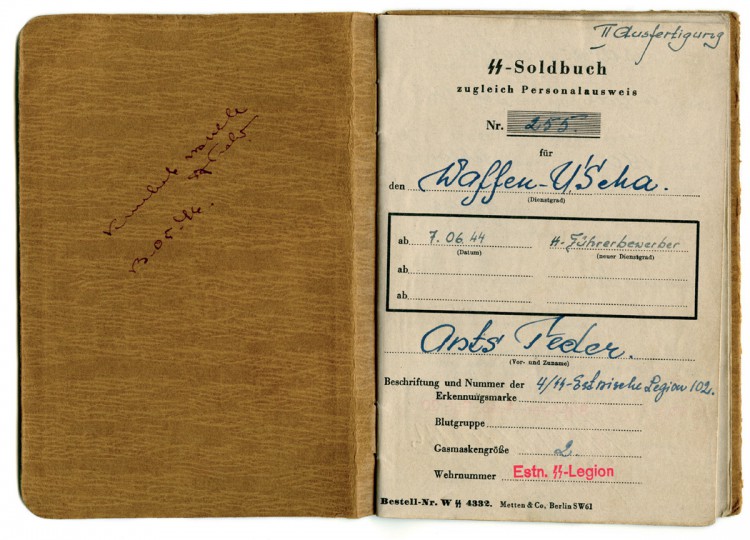 II Ausfertigung
ϟϟ-Soldbuch
zugleich Personalausweis
Nr. 255.
für
den Waffen-U'Scha.
(Dienstgrad)
ab 7.06.44 ϟϟ-Führerbewerber
(Datum) (neuer Dienstgrad)
ab
ab
Ants Feder.
(Vor- und Zuname)
Beschriftung und Nummer der 4/ϟϟ-Estnische Legion 102.
Erkennungsmarke
Blutgruppe
Gasmaskengröße 2.
Wehrnummer Estn. ϟϟ-Legion
Bestell-Nr. W ϟϟ 4332. Metten & Co. Berlin SW61